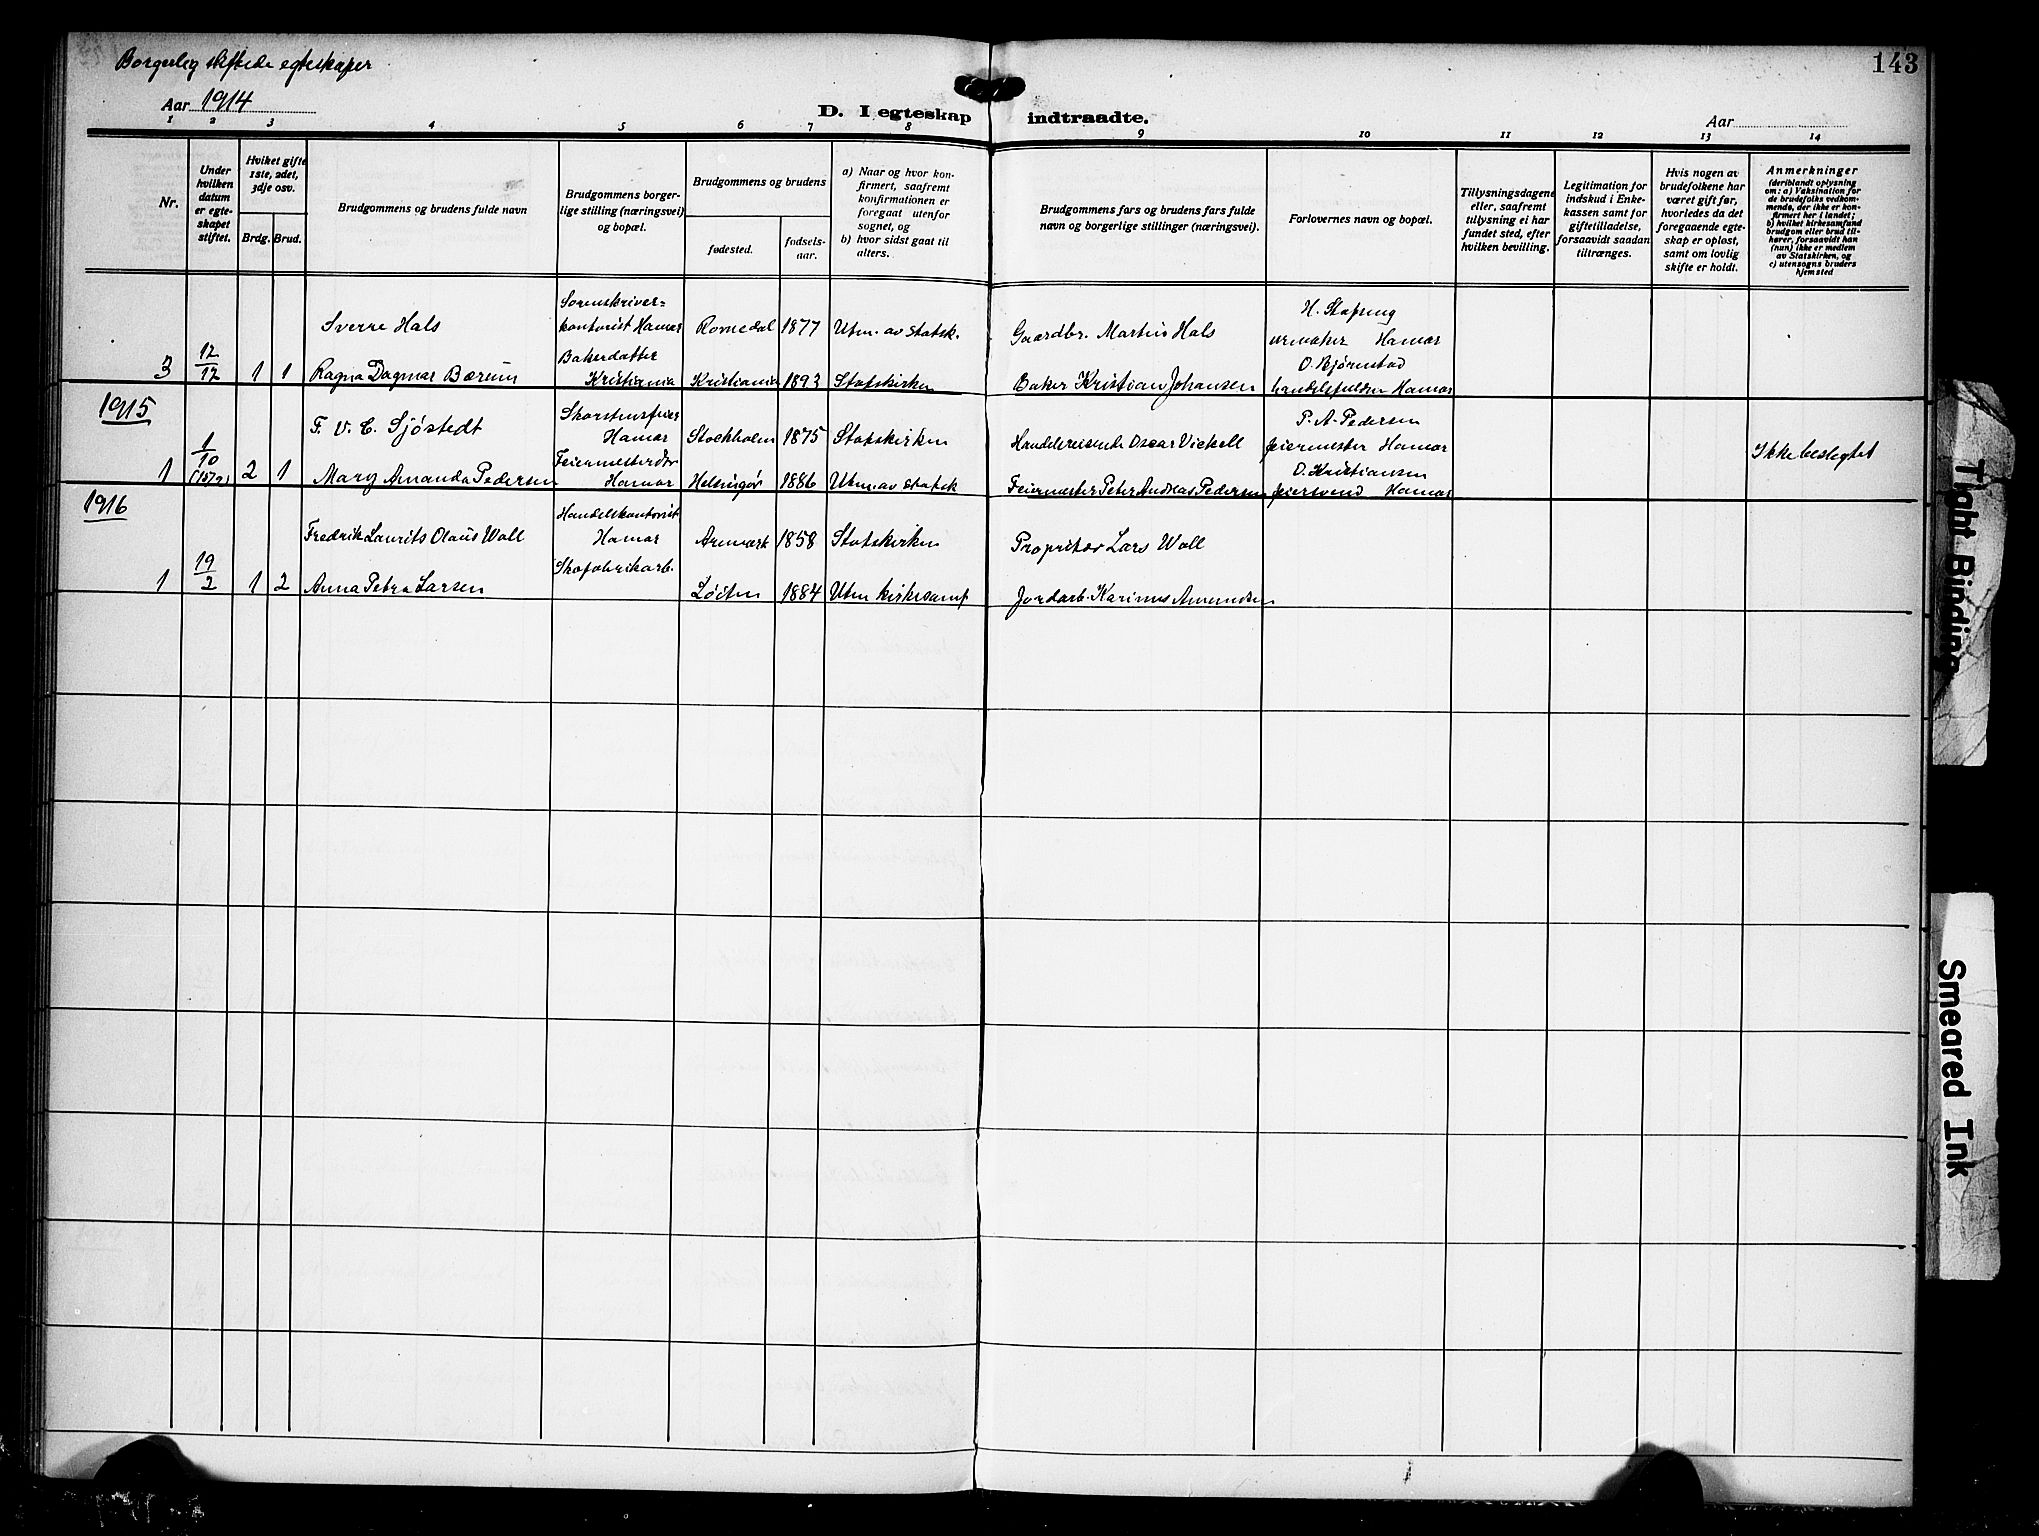 Borgerlig stiftede egteskaper
143
Aar 1914
D. I egteskap indtraadte.
Aar
1 2 3 4 5 6 7 8 9 10 11 12 13 14
Nr.
Under hvilken datum er egteskapet stiftet.
Hvilket gifte 1ste, 2det, 3dje osv.
Brdg. Brud.
Brudgommens og brudens fulde navn
Brudgommens borgerlige stilling (næringsvei) og bopæl.
Brudgommens og brudens
fødested.
fødselsaar.
a) Naar og hvor konfirmert, saafremt konfirmationen er foregaat utenfor sognet, og
b) hvor sidst gaat til alters.
Brudgommens fars og brudens fars fulde navn og borgerlige stillinger (næringsvei).
Forlovernes navn og bopæl.
Tillysningsdagene eller, saafremt tillysning ei har fundet sted, efter hvilken bevilling.
Legitimation for indskud i Enkekassen samt for giftetilladelse, forsaavidt saadan tiltrænges.
Hvis nogen av brudefolkene har været gift før, hvorledes da det foregaaende egteskap er opløst, samt om lovlig skifte er holdt.
Anmerkninger
(deriblandt oplysning om: a) Vaksination for de brudefolks vedkommende, der ikke er konfirmert her i landet; b) hvilket kirkesamfund brudgom eller brud tilhører, forsaavidt han (hun) ikke er medlem av Statskirken, og c) utensogns bruders hjemsted
Sverre Hals Sorenskriverkontorist Hamar Romedal 1877 Utm. av statsk. Gaardbr. Martius Hals H. Stafseng urmaker Hamar
3 12/12 1 1 Ragna Dagmar Bærum Bakerdatter Kristiania Kristiania 1893 Statskirken Baker Kristian Johansen O. Bjørnstad Hamar
1915
F. V. C. Sjøstedt Skorstensfeier Hamar Stockholm 1875 Statskirken Handelsreisende Oscar Vickell P. A. Pedersen feiermester Hamar
1 1/10 (15/9) 2 1 Mary Amanda Pedersen Feiermesterdtr Hamar Helsingør 1886 Utm. av statsk Feiermester Peter Andreas Pedersen O. Kristiansen feiersvend Hamar Ikke beslegtet
1916
Fredrik Laurits Olaus Woll Handelskontorist Hamar 1858 Statskirken Proprietær Lars Woll
1 19/2 1 2 Anna Petra Larsen Skofabrikarb. Løiten 1884 Utm kirkesamf Jordarb. Karinus Amundsen
Tight Binding
Smeared Ink